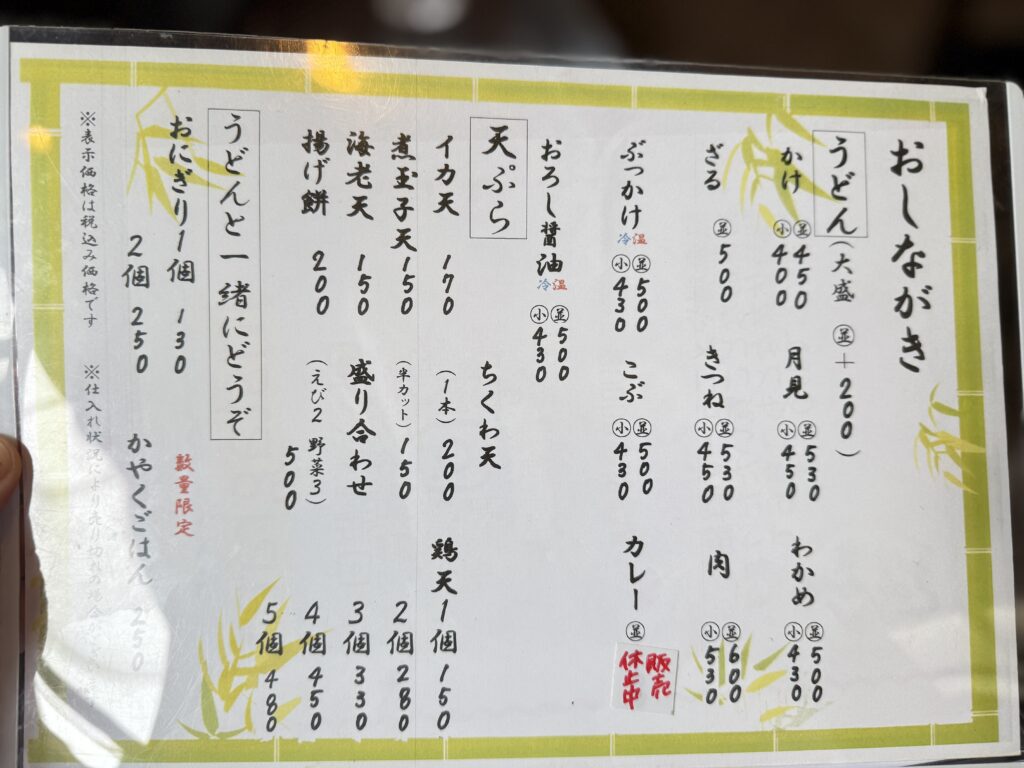 おしながき
うどん（大盛 並＋200）
かけ 並450
小400
月見 並530
小450
わかめ 並500
小430
ざる 並500
きつね 並530
小450
肉 並600
小530
ぶっかけ 冷温 並500
小430
こぶ 並500
小430
カレー 並
販売
休止中
おろし醤油 冷温 並500
小430
天ぷら
イカ天 170
煮玉子天 150
海老天 150
揚げ餅 200
ちくわ天
（1本）200
（半カット）150
盛り合わせ
（えび2 野菜3）
500
鶏天 1個 150
2個 280
3個 330
4個 450
5個 480
うどんと一緒にどうぞ
おにぎり 1個 130
2個 250
数量限定
かやくごはん 250
※表示価格は税込み価格です ※仕入れ状況により売り切れの場合が